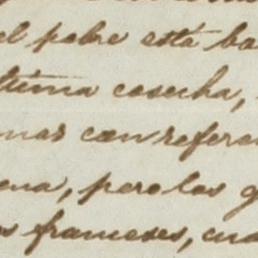 el pobre está ba
ltima cosecha,
nas con refere
ena, pero los g
s franceses, cua